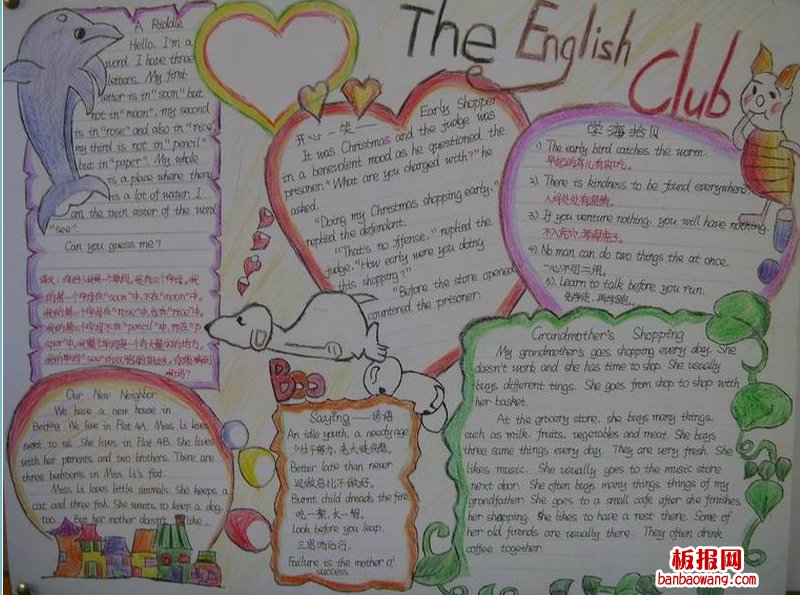 The English Club
A Riddle
Hello, I'm a
word. I have three
letters. My first
letter is in "soon" but
not in "moon", my second
is in "rose" and also in "nice"
my third is not in "pencil"
but in "paper". My whole
is a place where there
is a lot of water. I
am the twin sister of the word
"see".
Can you guess me?
开心一笑——
Early Shopper
It was Christmas and the judge was
in a benevolent mood as he questioned the
prisoner. "What are you charged with?" he
asked.
"Doing my Christmas shopping early,"
replied the defendant.
"That's no offense," replied the
judge. "How early were you doing
this shopping?"
"Before the store opened
countered the prisoner.
学海拾贝
1) The early bird catches the worm.
早起的鸟儿有虫吃。
2) There is kindness to be found everywhere
人间处处有温情。
3) If you venture nothing, you will have nothing.
不入虎穴,焉得虎子。
4) No man can do two things the at once.
一心不可二用。
5). Learn to talk before you run.
先学走,再学跑。
Our New Neighbor
We have a new house in
Beijing. We live in Flat 4A. Miss Li loves
next to us. She lives in Flat 4B. She lives
with her parents and two brothers. There are
three bedrooms in Miss Li's flat.
Miss Li loves little animals. She keeps a
cat and three fish. She wants to keep a dog,
too. But her mother doesn't like...
Boo
Saying——谚语
An idle youth, a needy age.
少壮不努力,老大徒伤悲。
Better late than never
迟做总比不做好。
Burnt child dreads the fire.
吃一堑,长一智。
Look before you leap.
三思而后行。
Failure is the mother of
success.
Grandmother's Shopping
My grandmother's goes shopping every day. She
doesn't work and she has time to shop. She usually
buys different tings. She goes from shop to shop with
her basket.
At the grocery store, she buys many things,
such as milk, fruits, vegetables and meat. She buys
three same things every day. They are very fresh. She
likes music. She usually goes to the music store
next door. She often buys many things things of my
grandfather. She goes to a small cafe after she finishes
her shopping. She likes to have a rest there. Some of
her old friends are usually there. They often drink
coffee together.
板报网
banbaowang.com